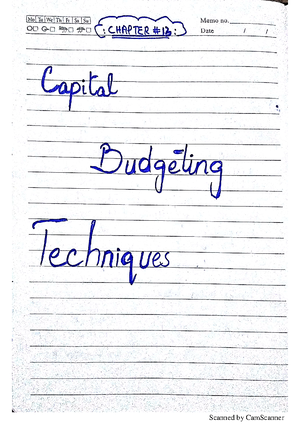 Mo Tu We Th Fr Sa Su
Memo no.
Date / /
CHAPTER #13:
Capital
Budgeting
Techniques
Scanned by CamScanner